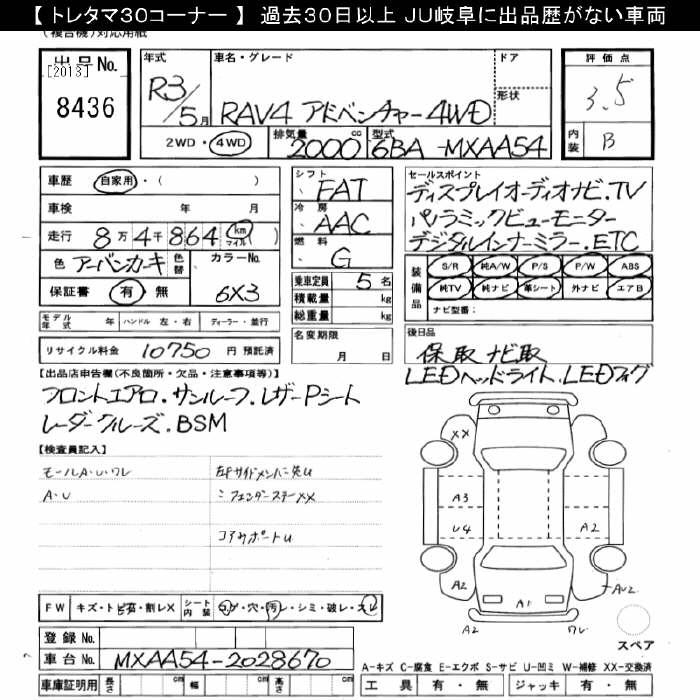 【 トレタマ30コーナー 】 過去30日以上 JU岐阜に出品歴がない車両
(複合機)対応用紙
出品No.
[2013]
8436
年式 R3/5月
車名・グレード ドア 形状
RAV4 アドベンチャー4WD
2WD・4WD 排気量 2000 cc 型式 6BA-MXAA54
評価点 3.5
内装 B
車歴 自家用・( )
車検 年 月
走行 8万4千864 (km マイル)
色 アーバンカーキ 色替 カラーNo. 6X3
保証書 有 無
モデル年式 年 ハンドル 左・右 ディーラー・並行
リサイクル料金 10750 円 預託済
シフト FAT
冷房 AAC
燃料 G
乗車定員 5名
積載量 kg
総重量 kg
名変期限
月 日
セールスポイント
ディスプレイオーディオナビ.TV
パノラミックビューモニター
デジタルインナーミラー.ETC
装備品 S/R 純A/W P/S P/W ABS
純TV 純ナビ 革シート 外ナビ エアB
ナビ型番:
後日品
保取 ナビ取
LEDヘッドライト.LEDフォグ
【出品店申告欄(不良箇所・欠品・注意事項等)】
フロントエアロ.サンルーフ.レザーPシート
レーダークルーズ.BSM
【検査員記入】
モールA・U・ワレ
A・U
左Fサイドメンバー先U
〃 フェンダーステーXX
コアサポートU
FW キズ・トビ石・割レX シート内装 コゲ・穴・汚レ・シミ・破レ・スレ
登録No.
車台No. MXAA54-2028670
車庫証明用 長さ cm 幅 cm 高さ cm
XX
A3
U4
A2
A2
AU2
A1
A2
ワレ
スペア
A-キズ C-腐食 E-エクボ S-サビ U-凹ミ W-補修 XX-交換済
工具 有・無 ジャッキ 有・無